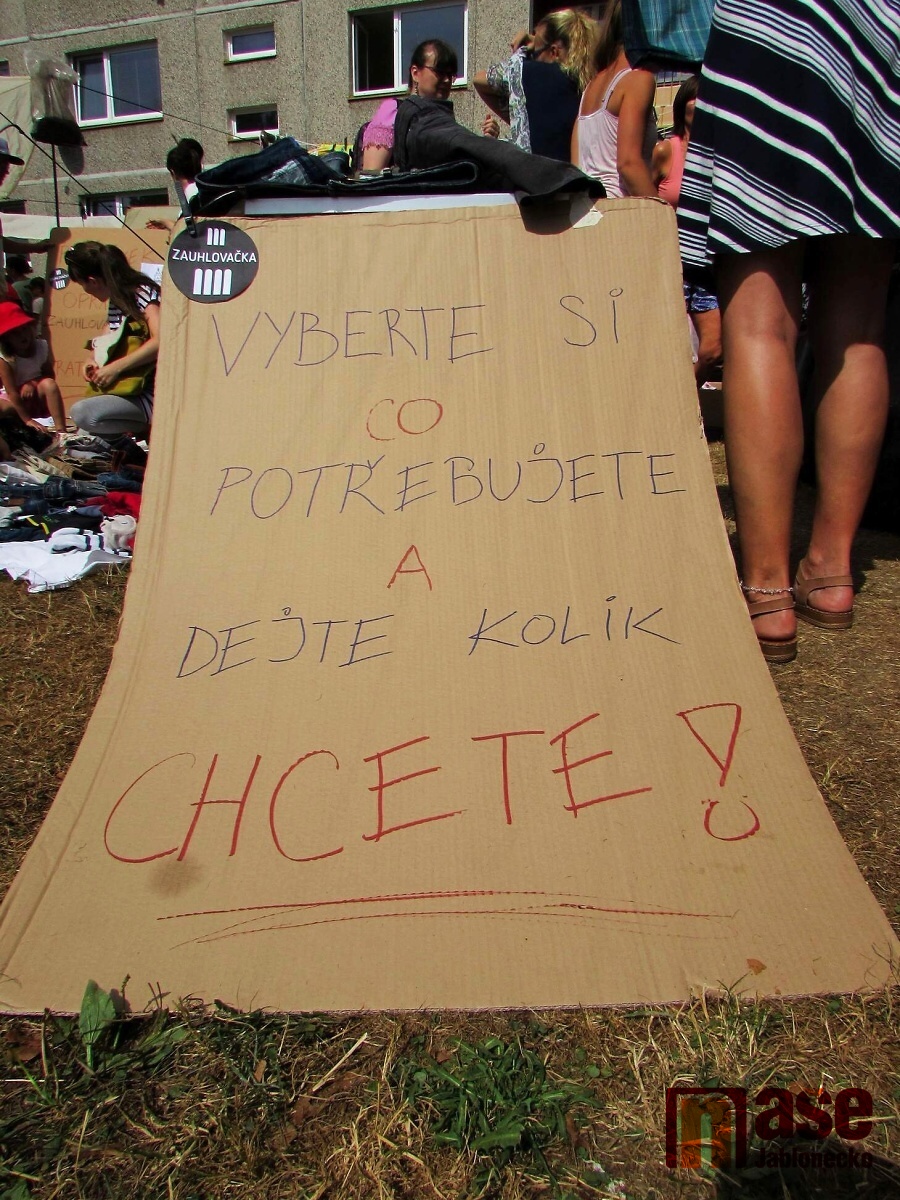 ZAUHLOVAČKA
VYBERTE SI
CO
POTŘEBUJETE
A
DEJTE KOLIK
CHCETE!
naše
Jablonecko